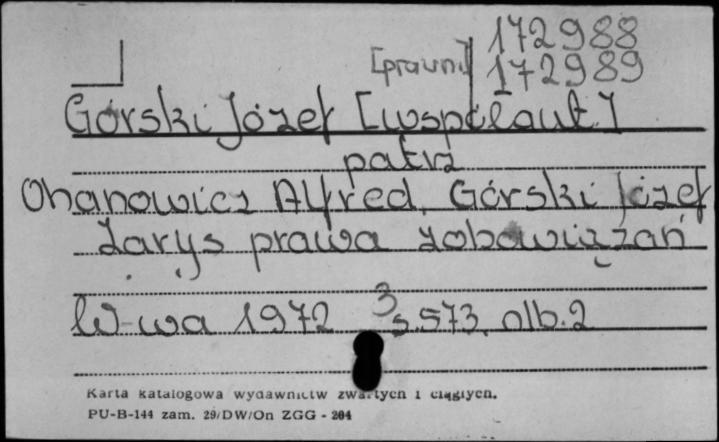 172988
[prawn.] 172989
Górski Józef [współaut.]
patrz
Ohanowicz Alfred, Górski Józef
Zarys prawa zobowiązań
W-wa 1972 s. 573, nlb. 2
3
Karta katalogowa wydawnictw zwartych i ciągłych.
PU-B-144 zam. 29/DW/On ZGG - 204